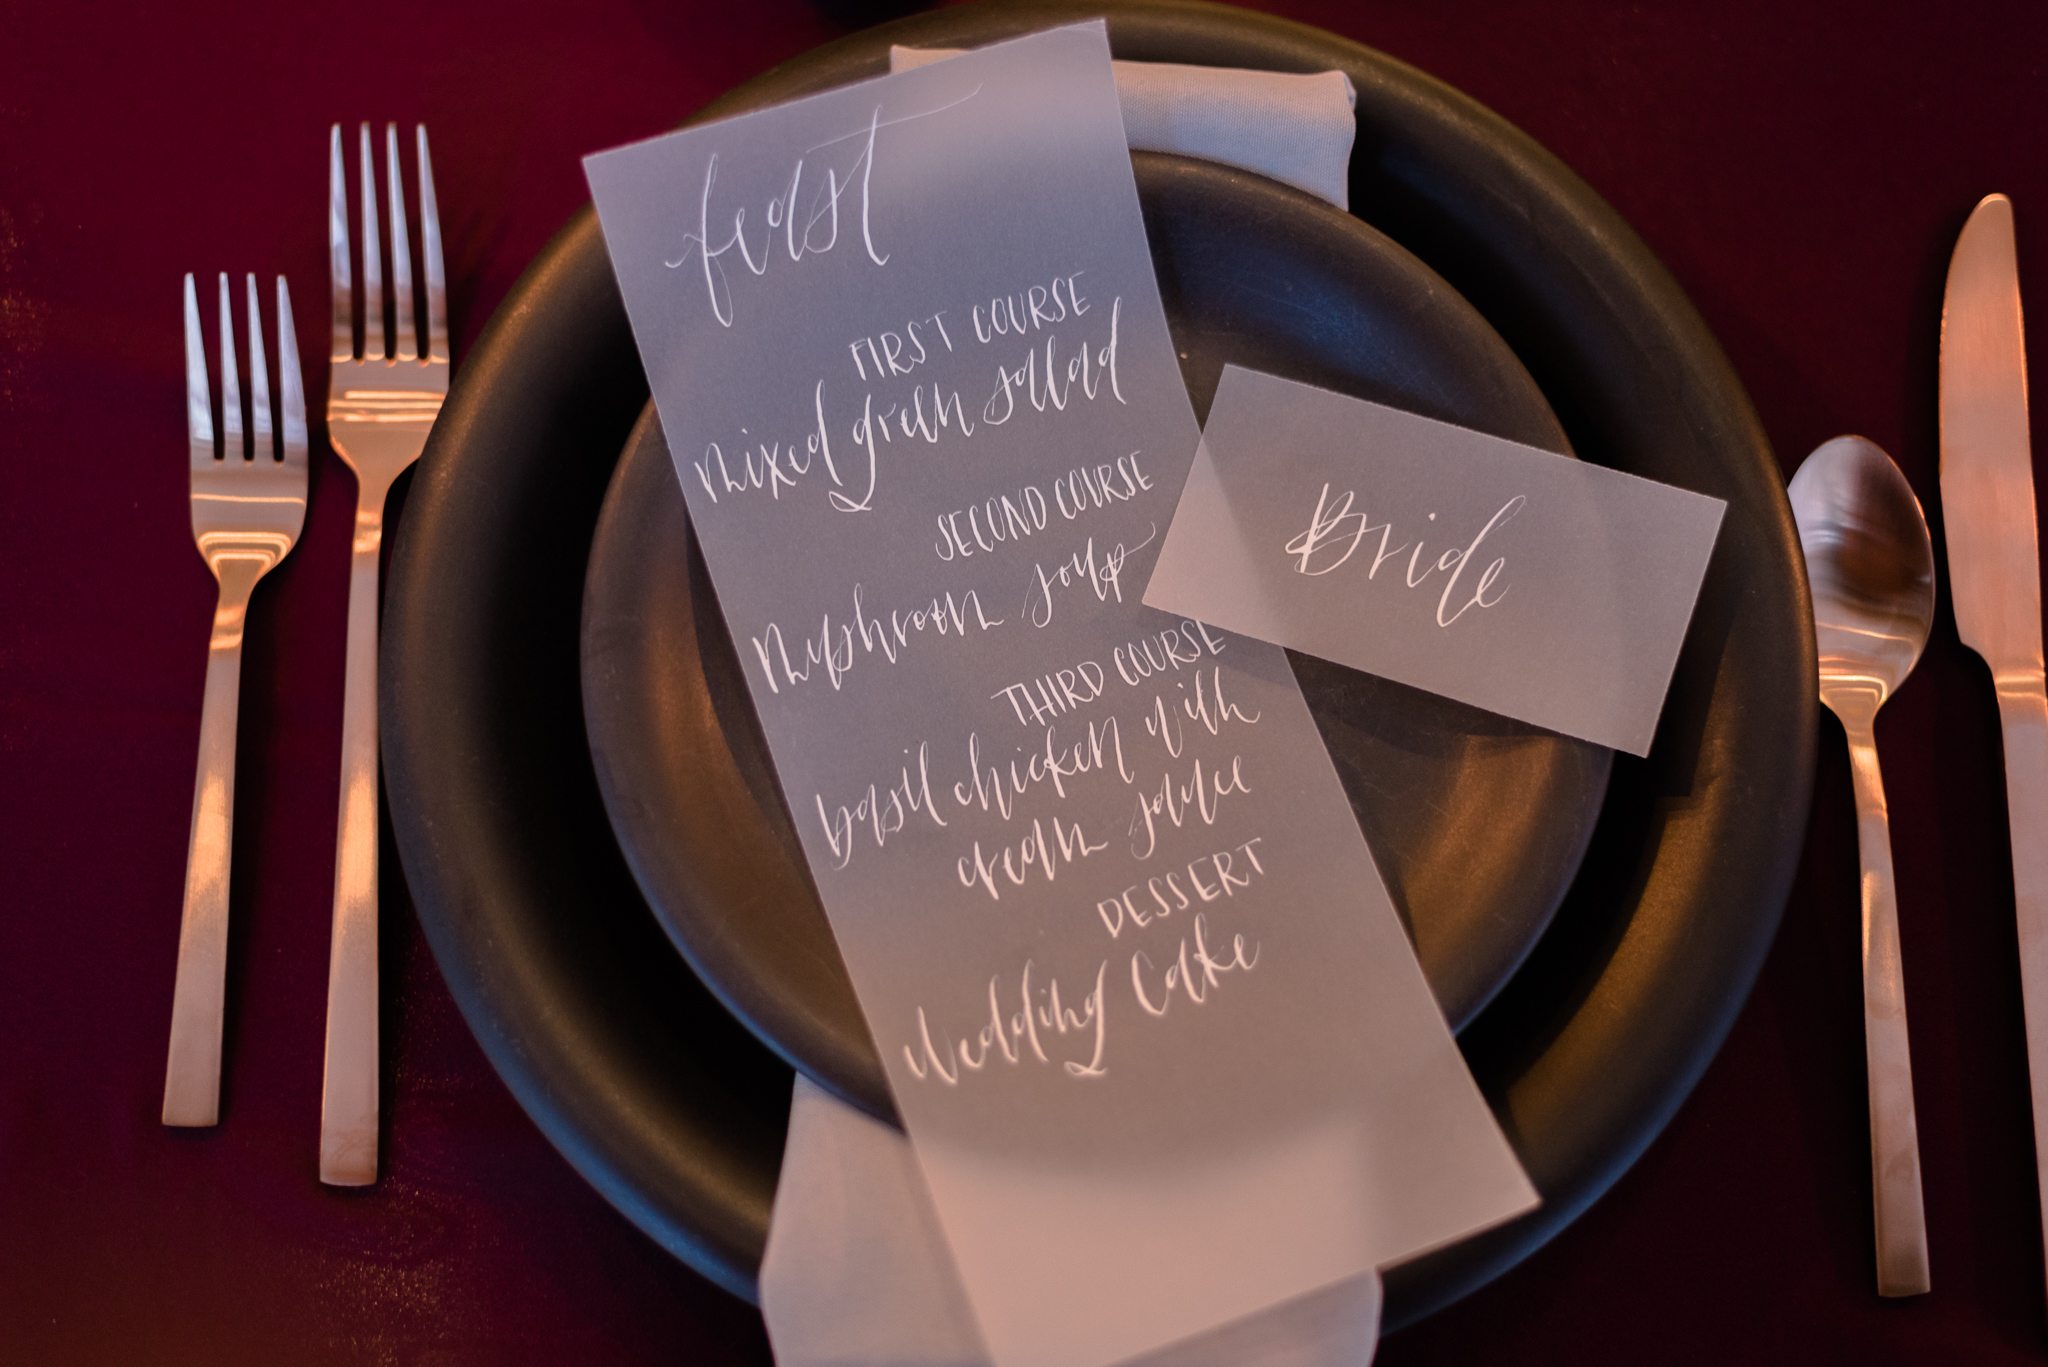 feast
FIRST COURSE
mixed green salad
SECOND COURSE
mushroom soup
THIRD COURSE
basil chicken with
cream sauce
DESSERT
wedding cake
Bride